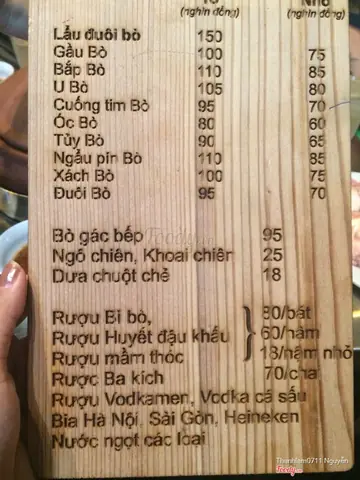 To Nhỏ
(nghìn đồng) (nghìn đồng)
Lẩu đuôi bò 150
Gầu Bò 100 75
Bắp Bò 110 85
U Bò 105 80
Cuống tim Bò 95 70
Óc Bò 80 60
Tủy Bò 90 65
Ngẩu pín Bò 110 85
Xách Bò 100 75
Đuôi Bò 95 70
Bò gác bếp 95
Ngô chiên, Khoai chiên 25
Dưa chuột chẻ 18
Rượu Bi bò, 80/bát
Rượu Huyết đậu khấu 60/nậm
Rượu mầm thóc 18/nậm nhỏ
Rược Ba kích 70/chai
Rượu Vodkamen, Vodka cá sấu
Bia Hà Nội, Sài Gòn, Heineken
Nước ngọt các loại
Thanhlam0711 Nguyễn
Foody